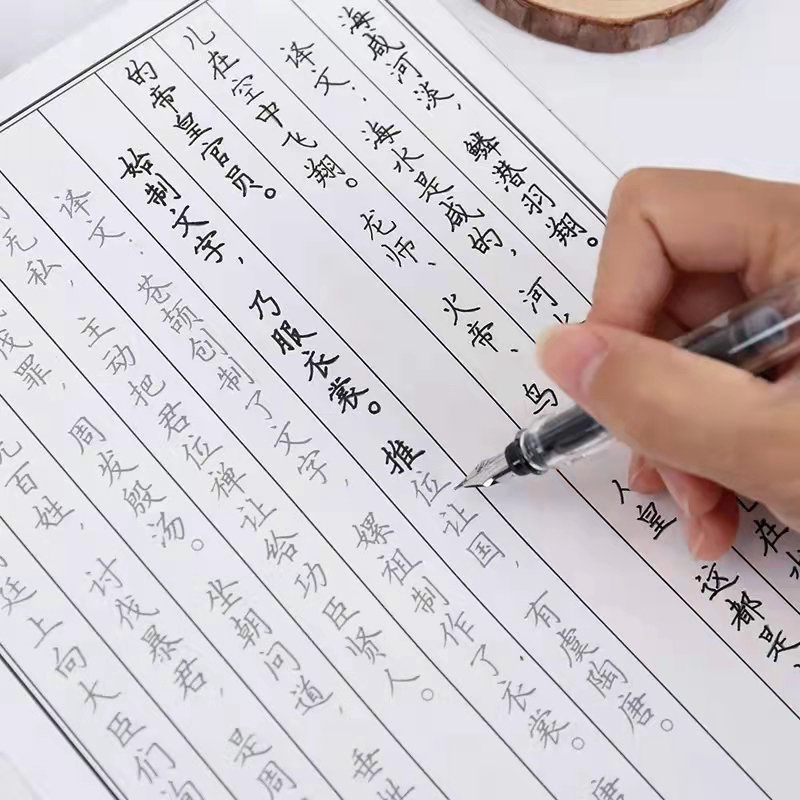 海咸河淡，鳞潜羽翔。
译文：海水是咸的，河 在水
儿在空中飞翔。龙师、火帝、鸟 人皇 这都是
的帝皇官员。
始制文字，乃服衣裳。推位让国，有虞陶唐。
译文：苍颉创制了文字，嫘祖制作了衣裳。唐
无私，主动把君位禅让给功臣贤人。
伐罪，周发殷汤。坐朝问道，垂
百姓，讨伐暴君，是周
廷上向大臣们